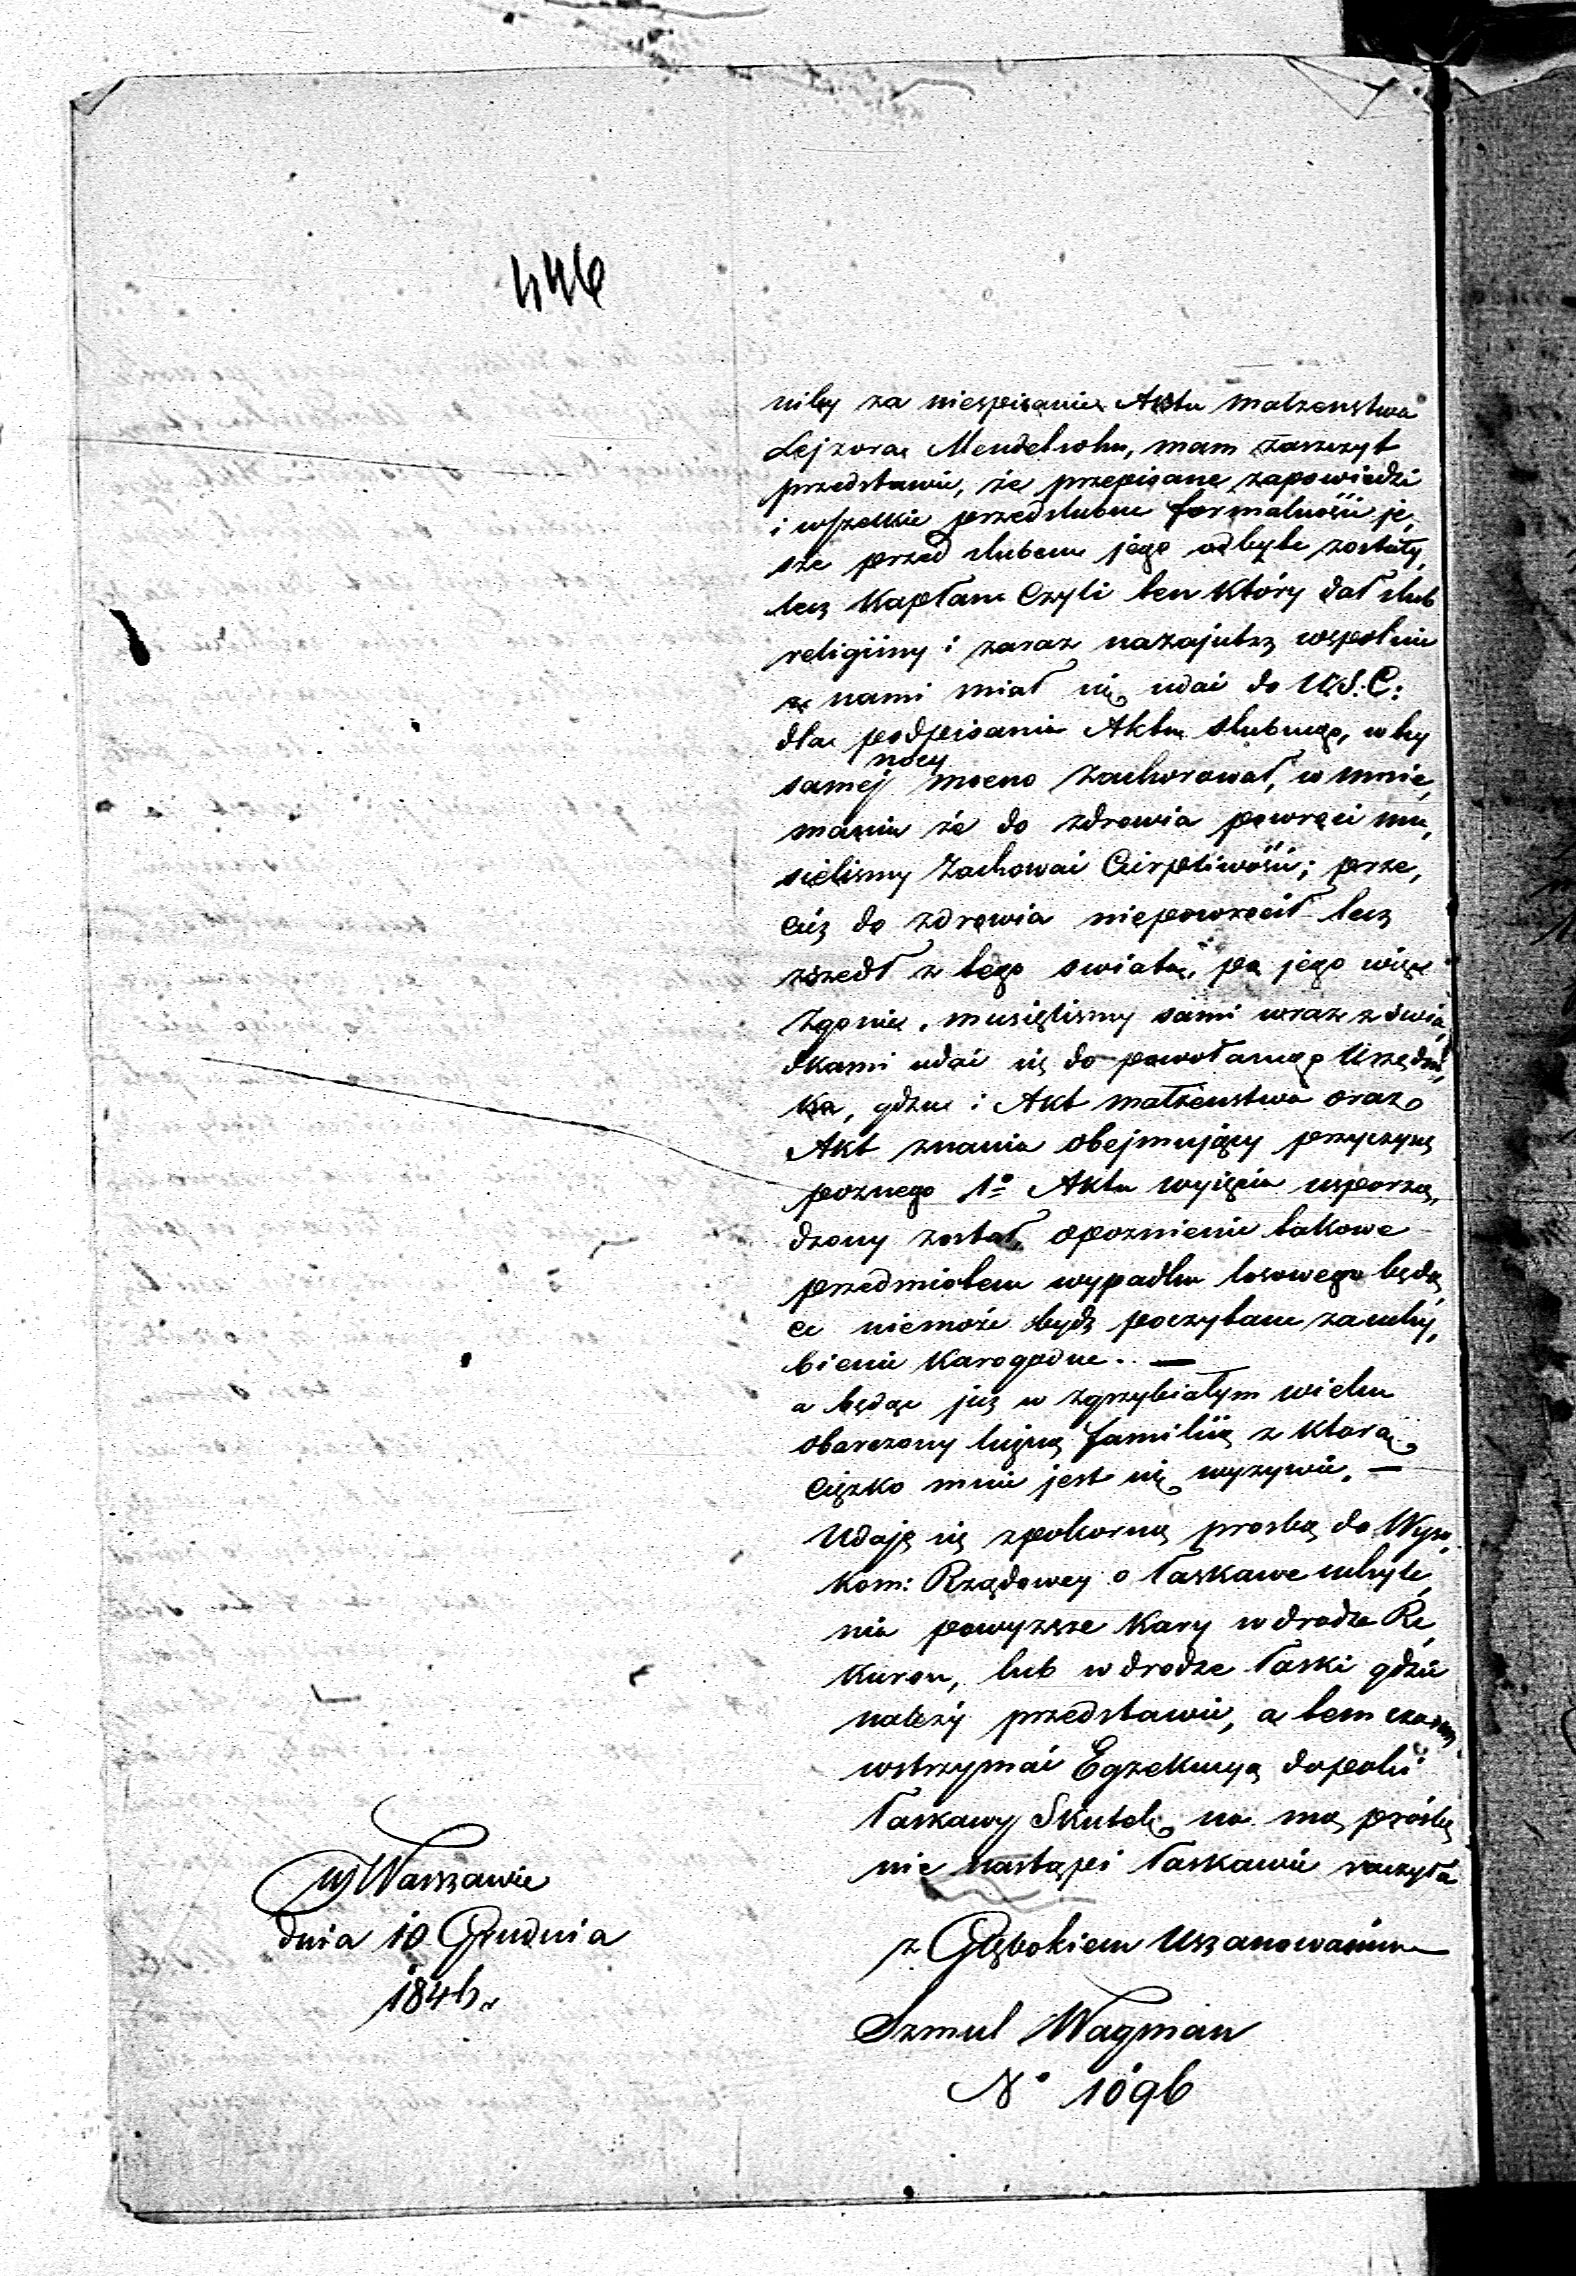 446
niby za niespisanie Aktu małzenstwa
Lejzora Mendelsohn, mam zaszczyt
przedstawić, że przepisane zapowiedzi
i wszelkie przedslubne formalności je,
sze przed slubem jego odbyte zostały,
lecz Kapłan Czyli ten Który dał slub
religijny i zaraz nazajutrz wspolnie
z nami miał się udać do U.S.C:
dla podpisania Aktu slubnego, w tey
samej nocy mocno Zachorował, w mnie,
maniu że do zdrowia powróci mu,
sielismy Zachować Cierpliwość; prze,
cież do zdrowia niepowrócił lecz
zszedł z tego swiata, po jego więc
Zgonie, musielismy sami wraz z swia,
dkami udać się do powołanego Urzędni,
ka, gdzie i Akt małżenstwa oraz
Akt znania obejmujący przyczynę
poznego 1o Aktu wyjęcia usporzą,
dzony został, opoznienie takowe
przedmiotem wypadku losowego będą,
ce niemoże bydź poczytane za uchy,
bienie Karogodne. —
a będąc już w zgrzybiałym wieku
obarczony liczną familiią z ktorą
Ciężko mnie jest się wyzywić. —
Udaję się z pokorną prosbą do Wyso,
Kom: Rządowey o łaskawe uchyle,
nie powyzsze Kary w drodze Re,
Kursu, lub w drodze łaski gdzie
należy przedstawić, a tem czasem
wstrzymać Egzekucyą dopoki
łaskawy Skutek na mą prośbę
nie nastąpi łaskawie raczyła
z Głębokiem Uszanowaniem
Szmul Wagman
No 1096
w Warszawie
dnia 10 Grudnia
184 r.